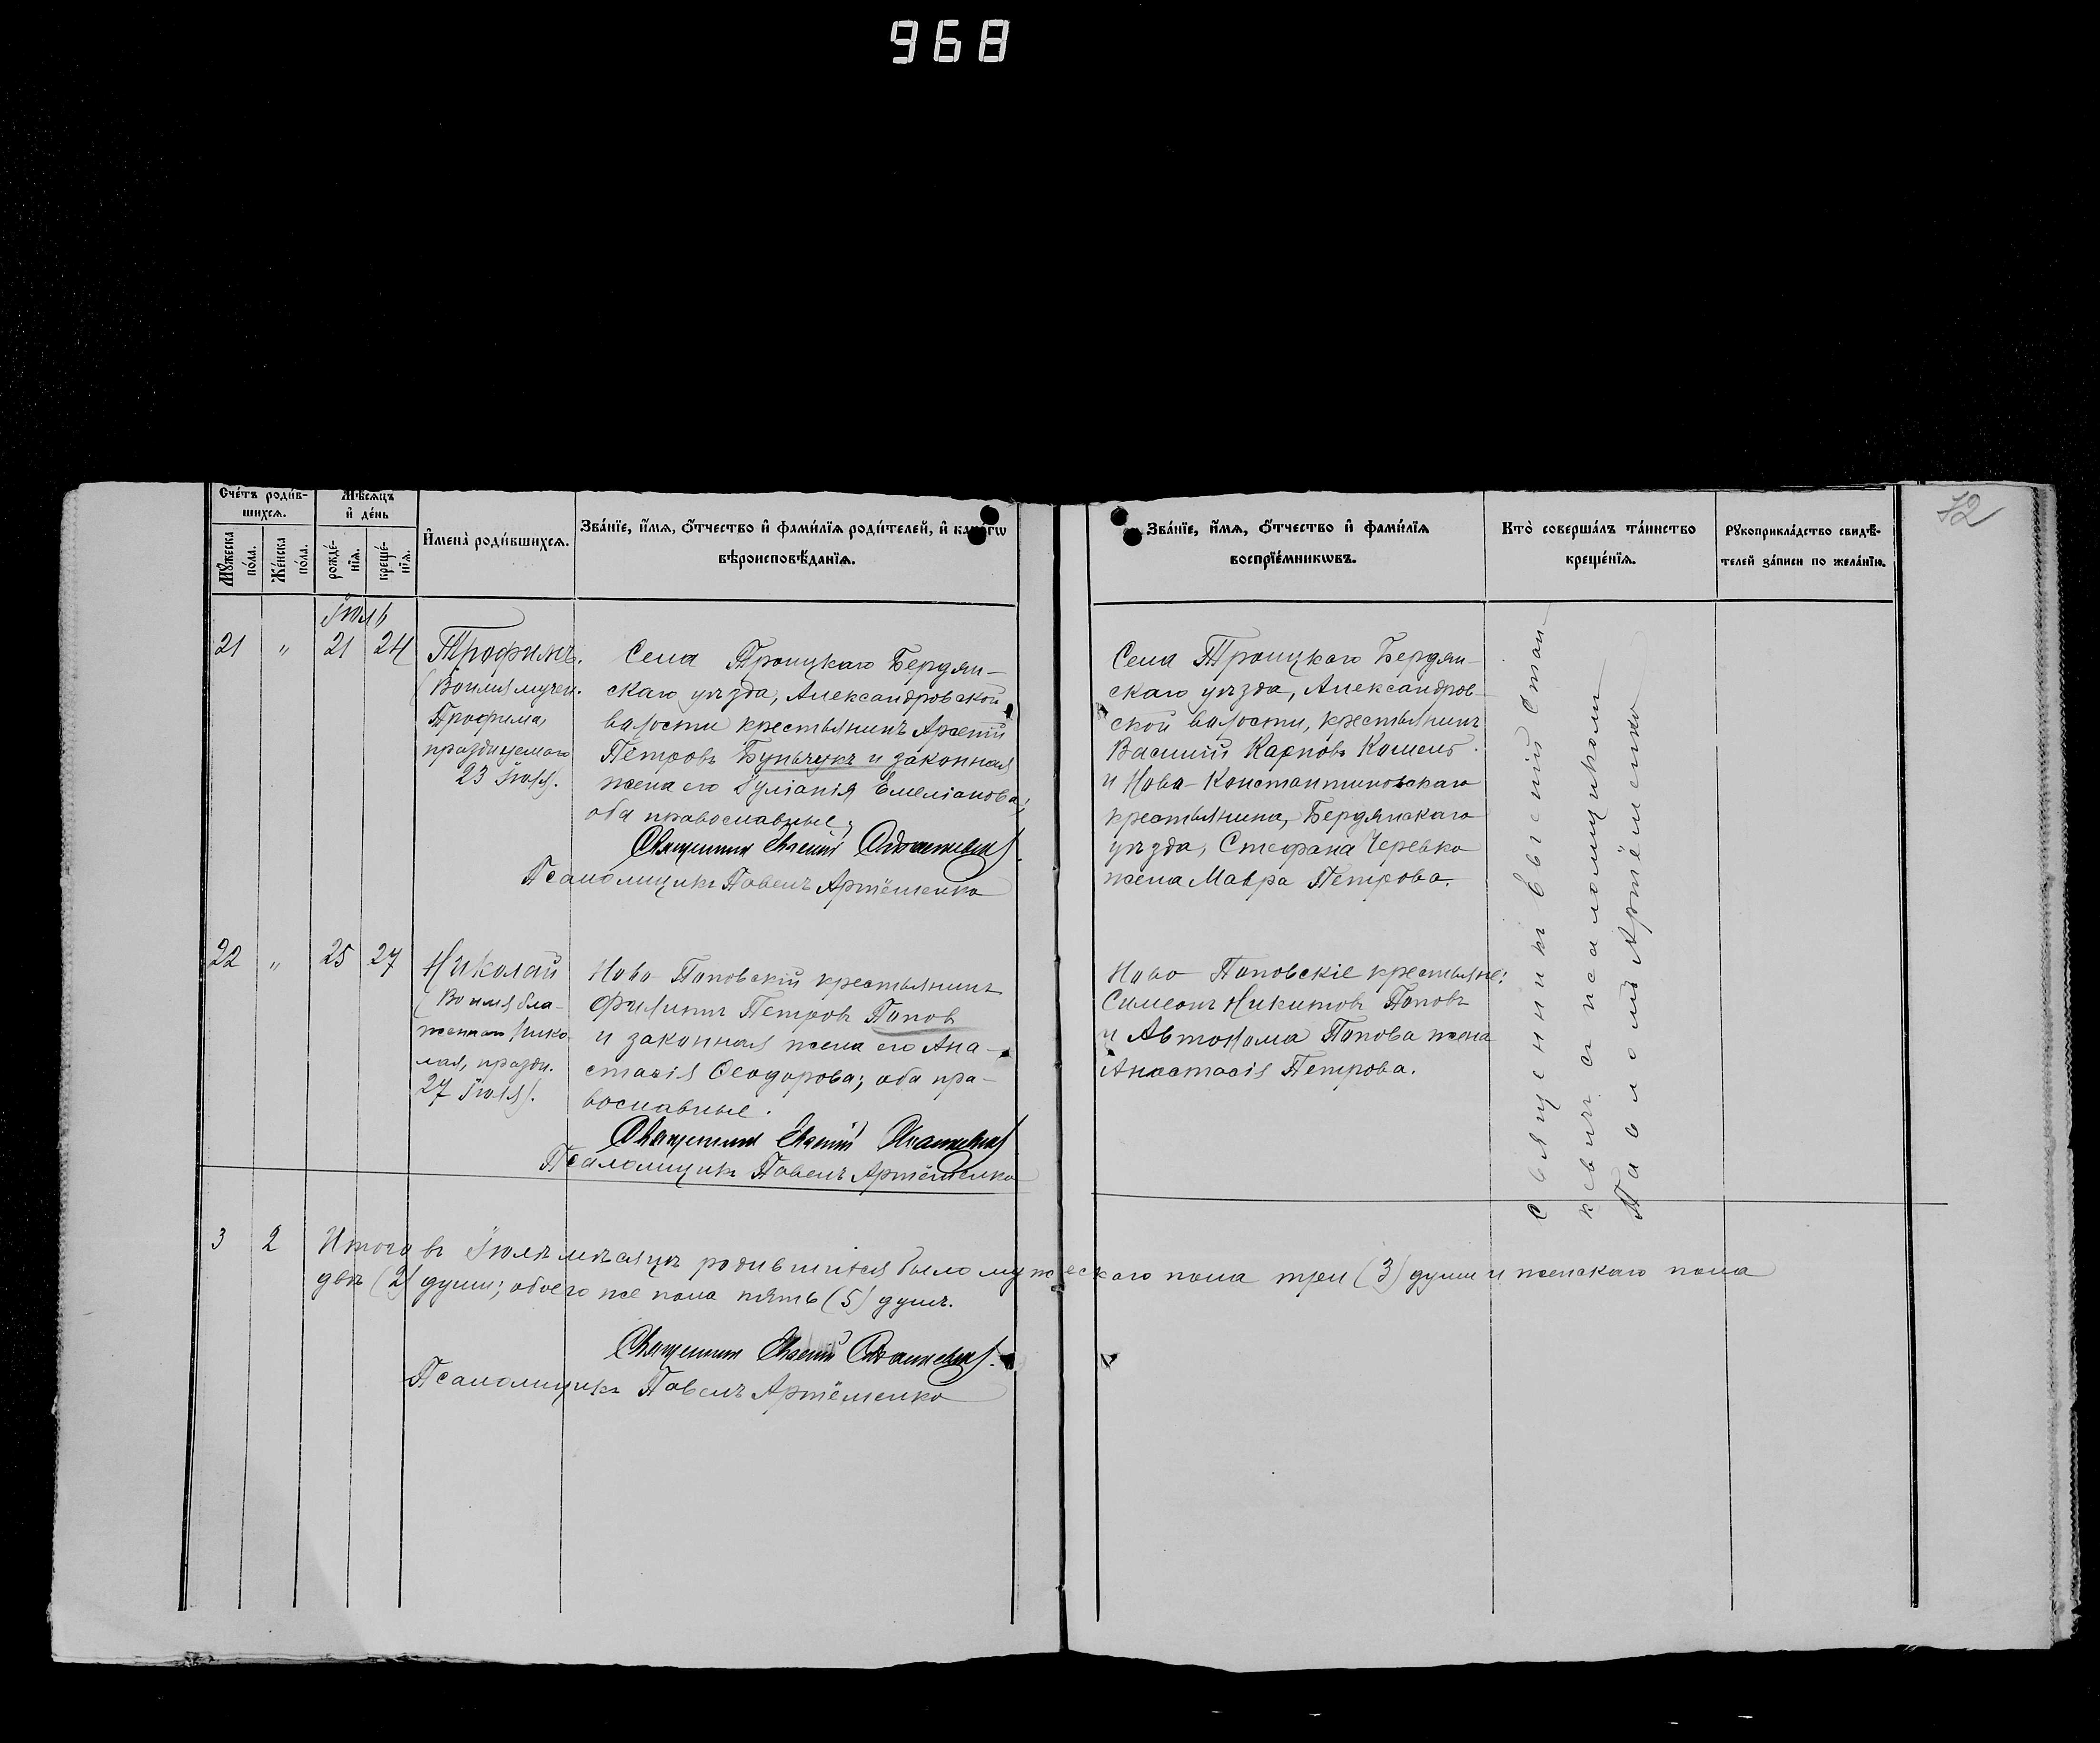 968
72
Сче́тъ роди́в-
шихсѧ.
Мѣ́сѧцъ
и҆ де́нь
Мꙋ́жеска
по́ла.
Же́нска
по́ла.
рожде́-
нїѧ.
креще́-
нїѧ.
И҆мена̀ роди́вшихсѧ.
Зва́нїе, и҆́мѧ, ѻ҆́тчество и҆ фами́лїѧ роди́телей, и҆
вѣроисповѣ́данїѧ.
Зва́нїе, и҆́мѧ, ѻ҆́тчество и҆ фами́лїѧ
воспрїе́мникѡвъ.
Кто̀ соверша́лъ та́инство
креще́нїѧ.
Рꙋкоприкла́дство свидѣ́-
телей за́писи по жела́нїю.
Іюль
21 " 21 24
Трофимъ.
(Во имя мучен.
Трофима,
празднуемаго
23 Іюля).
Села Троицкаго Бердян-
скаго уѣзда, Александровской
волости крестьянинъ Арсеній
Петровъ Бунчукъ и законная
жена его Іуліанія Емеліанова;
оба православные;
Священникъ
Псаломщикъ Павелъ Артёменко
Села Троицкаго Бердян-
скаго уѣзда, Александров-
ской волости, крестьянинъ
Василій Карповъ
и Ново-Константиновскаго
крестьянина, Бердянскаго
уѣзда, Стефана Черевко
жена Мавра Петрова.
22 " 25 27
Николай
(Во имя бла-
женнаго Нико-
лая, праздн.
27 Іюля).
Ново Поповскій крестьянинъ
Филипъ Петровъ Попов
и законная жена его Ана-
стасія Ѳеодорова; оба пра-
вославные.
Священникъ
Псаломщикъ Павелъ Артёменко
Ново Поповскіе крестьяне:
Симеонъ Никитовъ Поповъ
и Автонома Попова жена
Анастасія Петрова.
Священникъ Стан-
кевичъ съ псаломщикомъ
Павломъ Артёменко
3 2 Итого въ Іюлѣ мѣсяцѣ родившихся было мужескаго пола три (3) души и женскаго пола
двѣ (2) души; обоего же пола пять (5) душъ.
Священникъ
Псаломщикъ Павелъ Артёменко